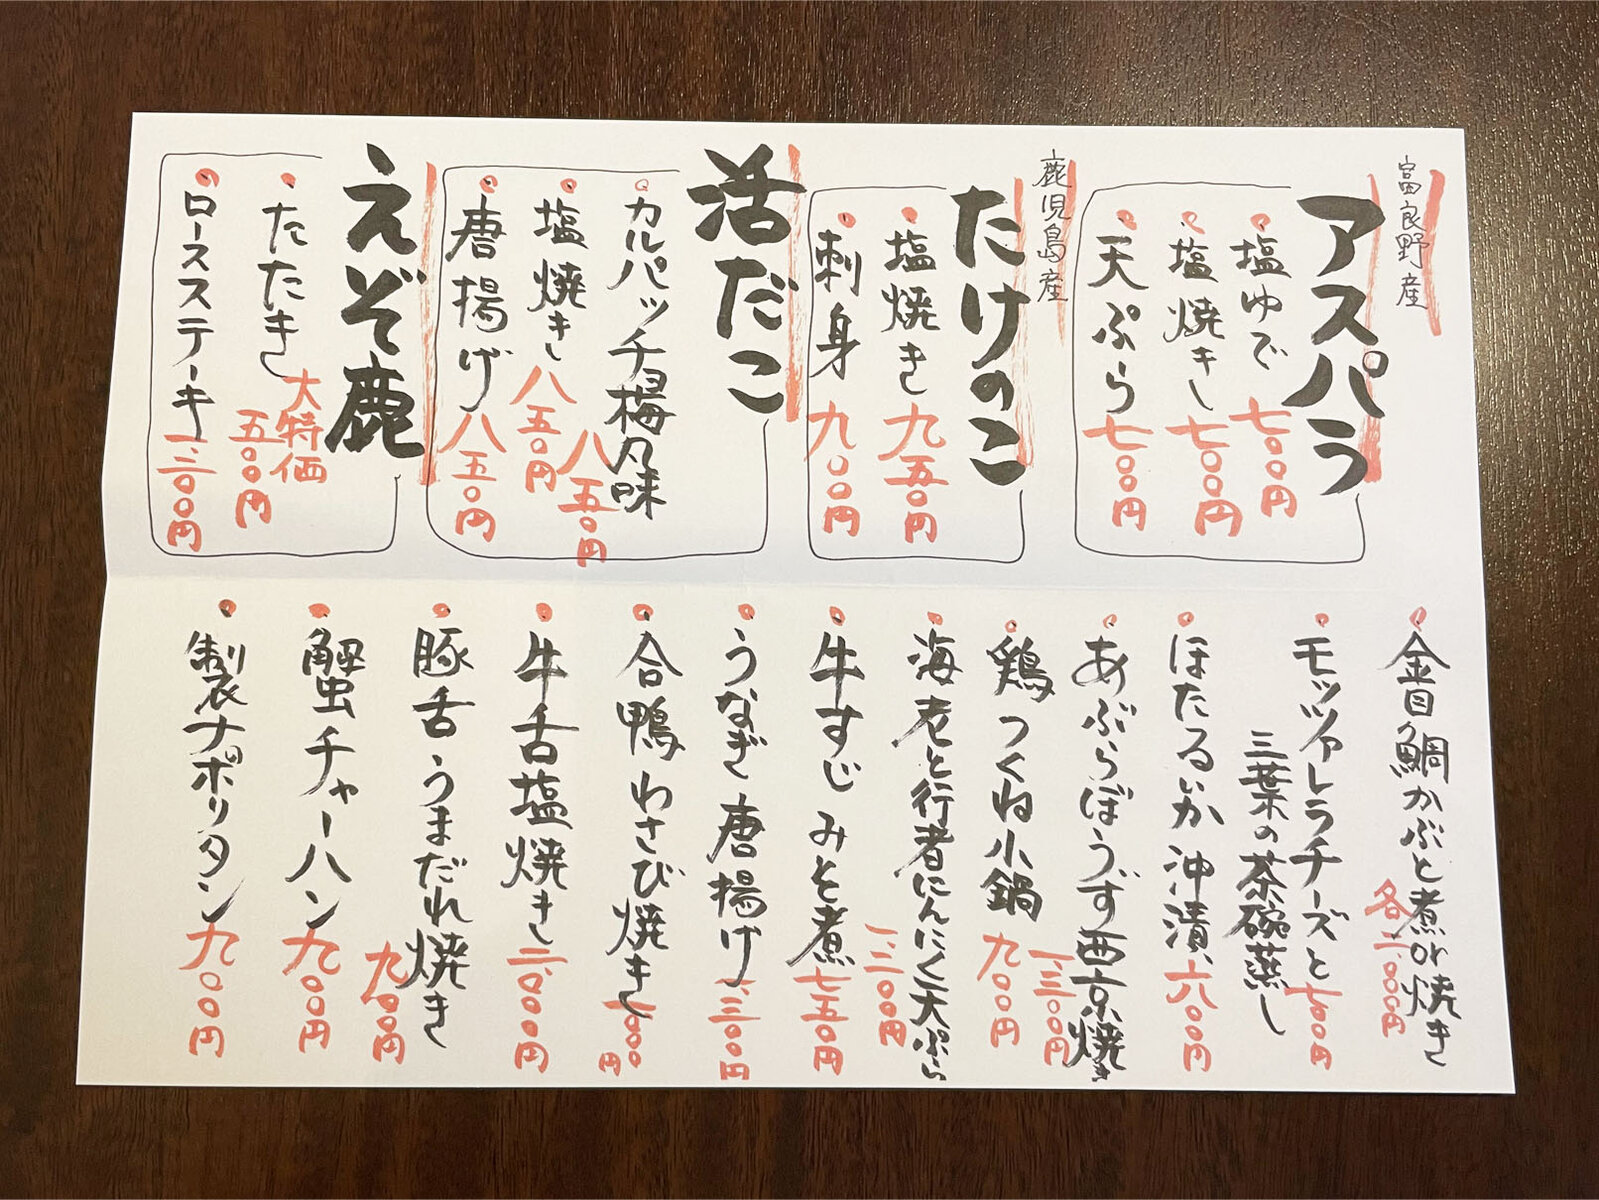 富良野産
アスパラ
塩ゆで 七〇〇円
塩焼き 七〇〇円
天ぷら 七〇〇円
鹿児島産
たけのこ
塩焼き 九五〇円
刺身 九〇〇円
活だこ
カルパッチョ梅肉味 八五〇円
塩焼き 八五〇円
唐揚げ 八五〇円
えぞ鹿
たたき 大特価
五〇〇円
ロースステーキ 一、二〇〇円
金目鯛かぶと煮or焼き
各二、〇〇〇円
モッツァレラチーズと 七〇〇円
三葉の茶碗蒸し
ほたるいか沖漬 六〇〇円
あぶらぼうず西京焼き
一、三〇〇円
鶏つくね小鍋 九〇〇円
海老と行者にんにく天ぷら
一、二〇〇円
牛すじみそ煮 七五〇円
うなぎ唐揚げ 一、三〇〇円
合鴨わさび焼き 一、〇〇〇円
牛舌塩焼き 二、〇〇〇円
豚舌うまだれ焼き
九〇〇円
蟹チャーハン 九〇〇円
製ナポリタン 九〇〇円